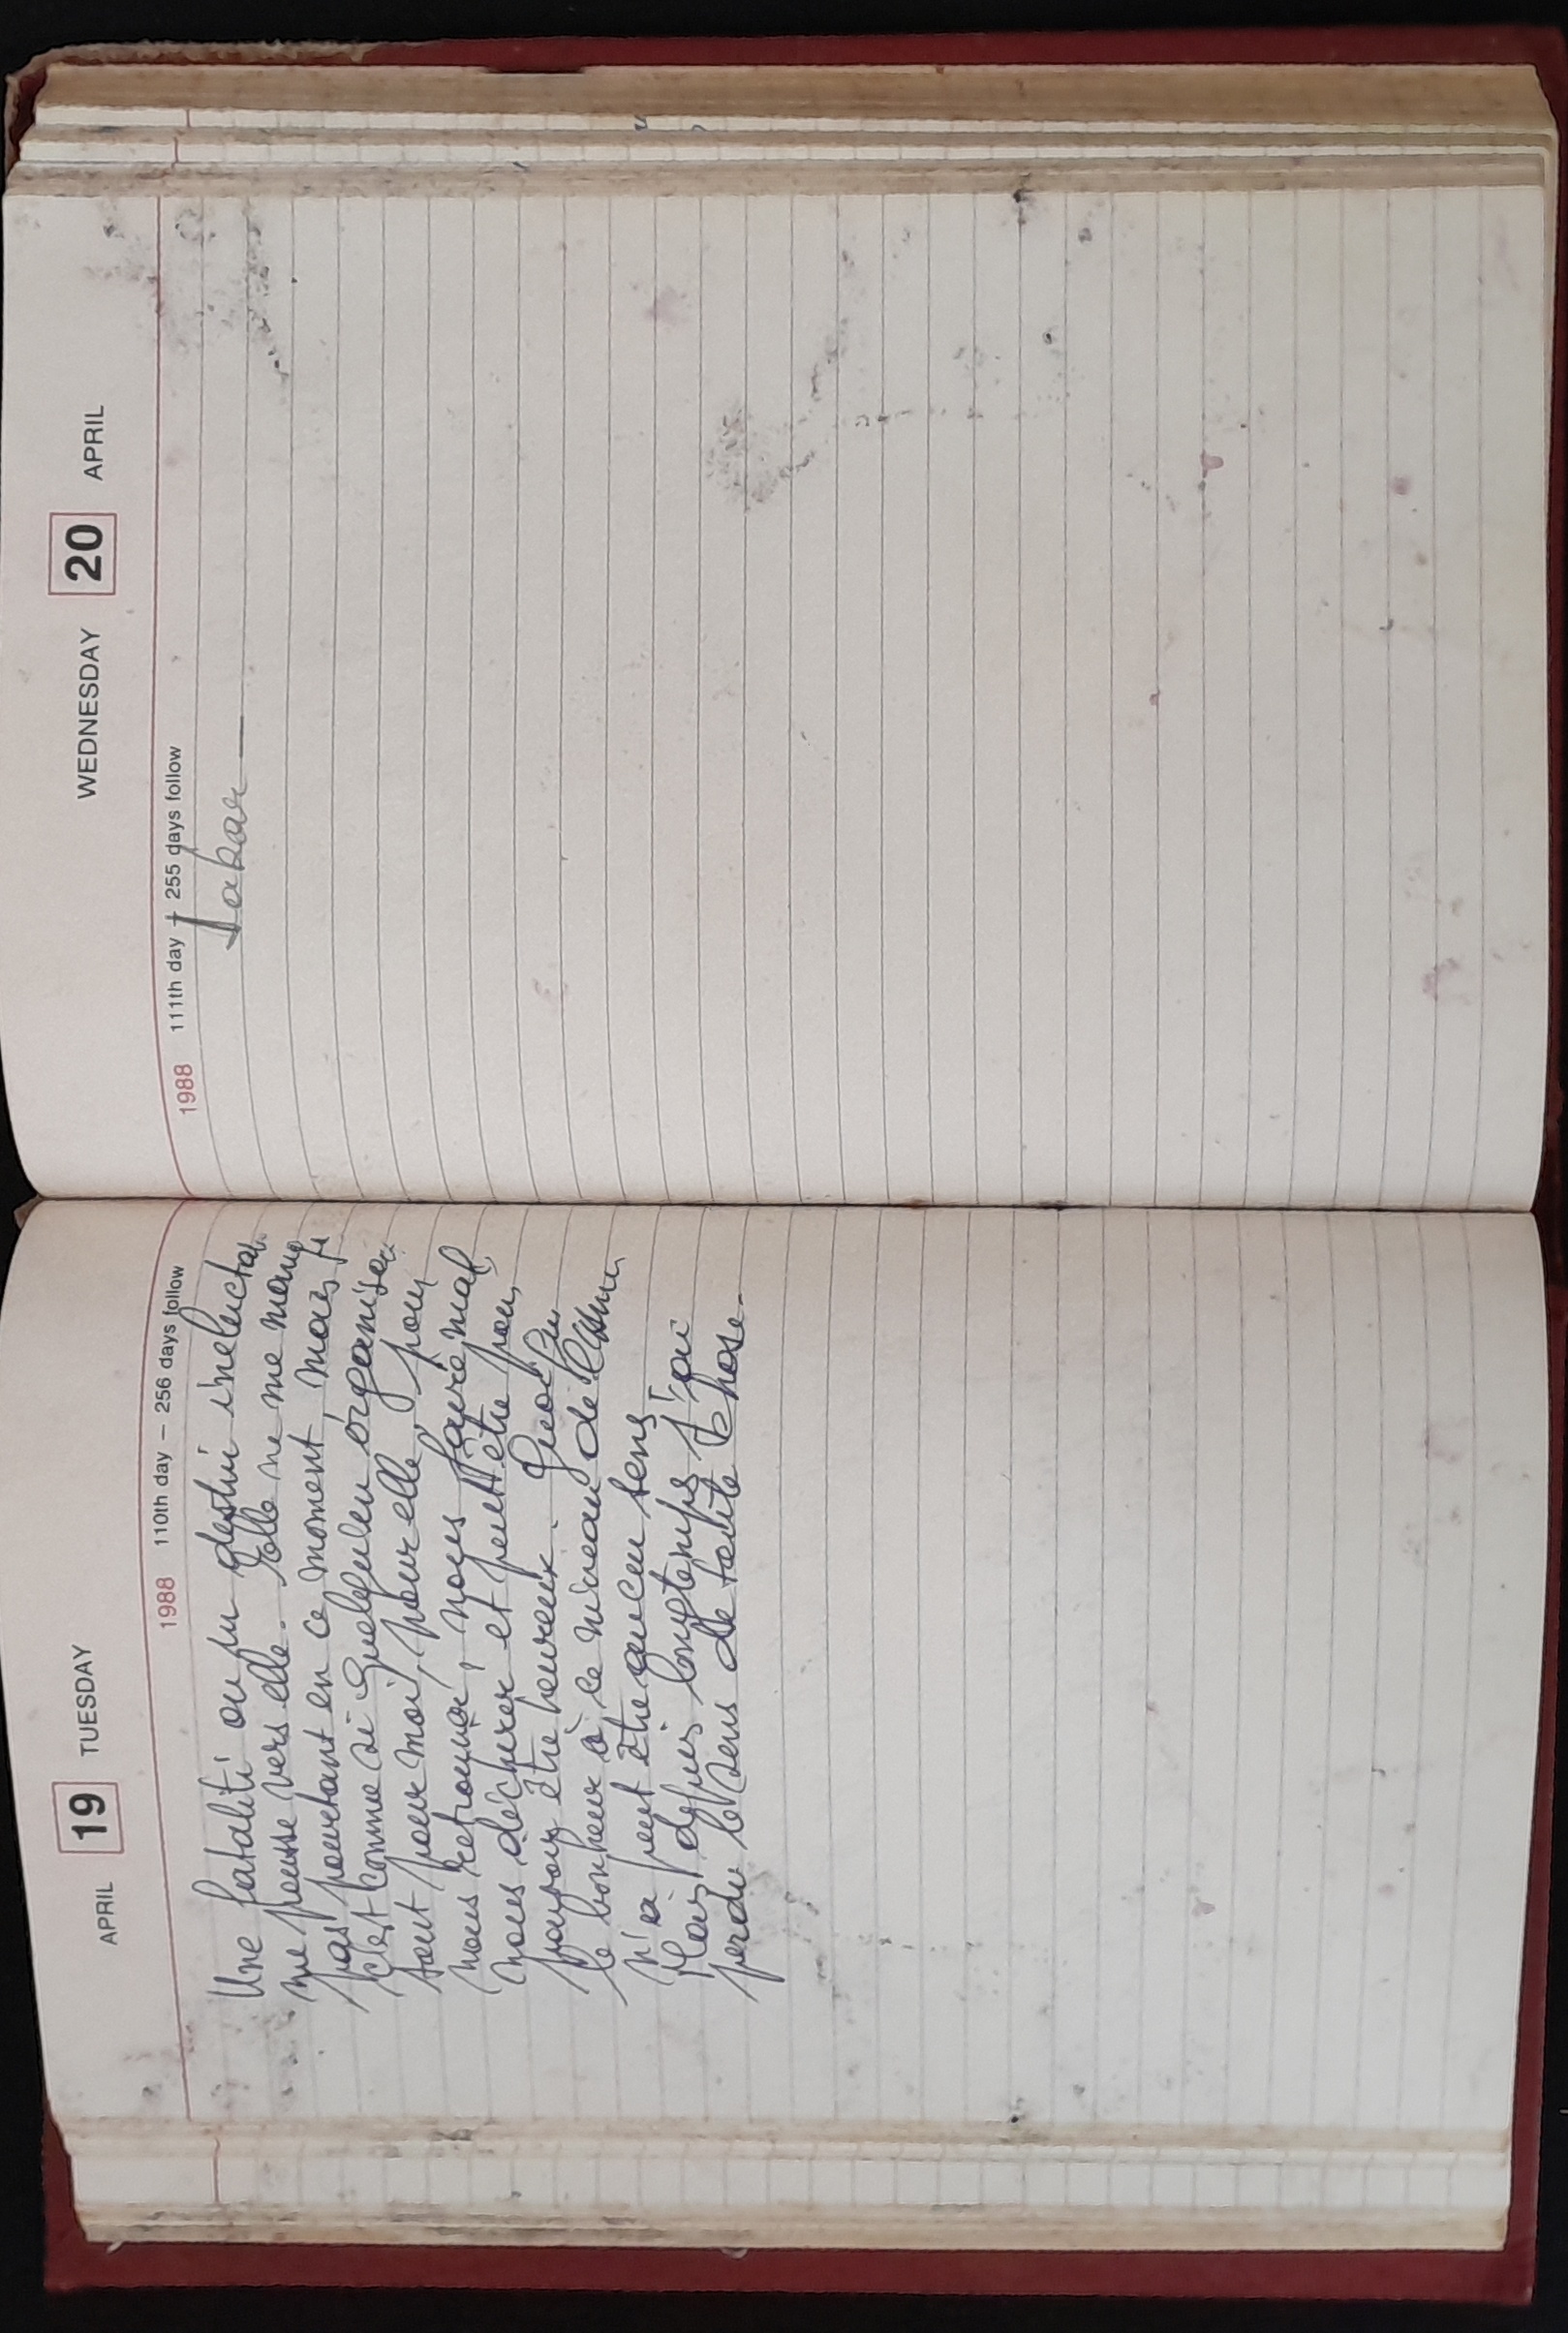 APRIL 19 TUESDAY
1988 110th day – 256 days follow
Une fatalité ou un destin inéluctab.
me pousse vers elle. Elle ne me manq
pas pourtant en ce moment, mais je
c'est comme si quelqu'un organisa
tout pour moi, pour elle, pour
nous retrouver, nous faire mal,
nous déchirer et peut être pour
pouvoir être heureux.
le bonheur à ce niveau de
n'a peut être aucun sens
Mais depuis longtemps j'ai
perdu le sens de toute chose.
WEDNESDAY 20 APRIL
1988 111th day – 255 days follow
Dakar —